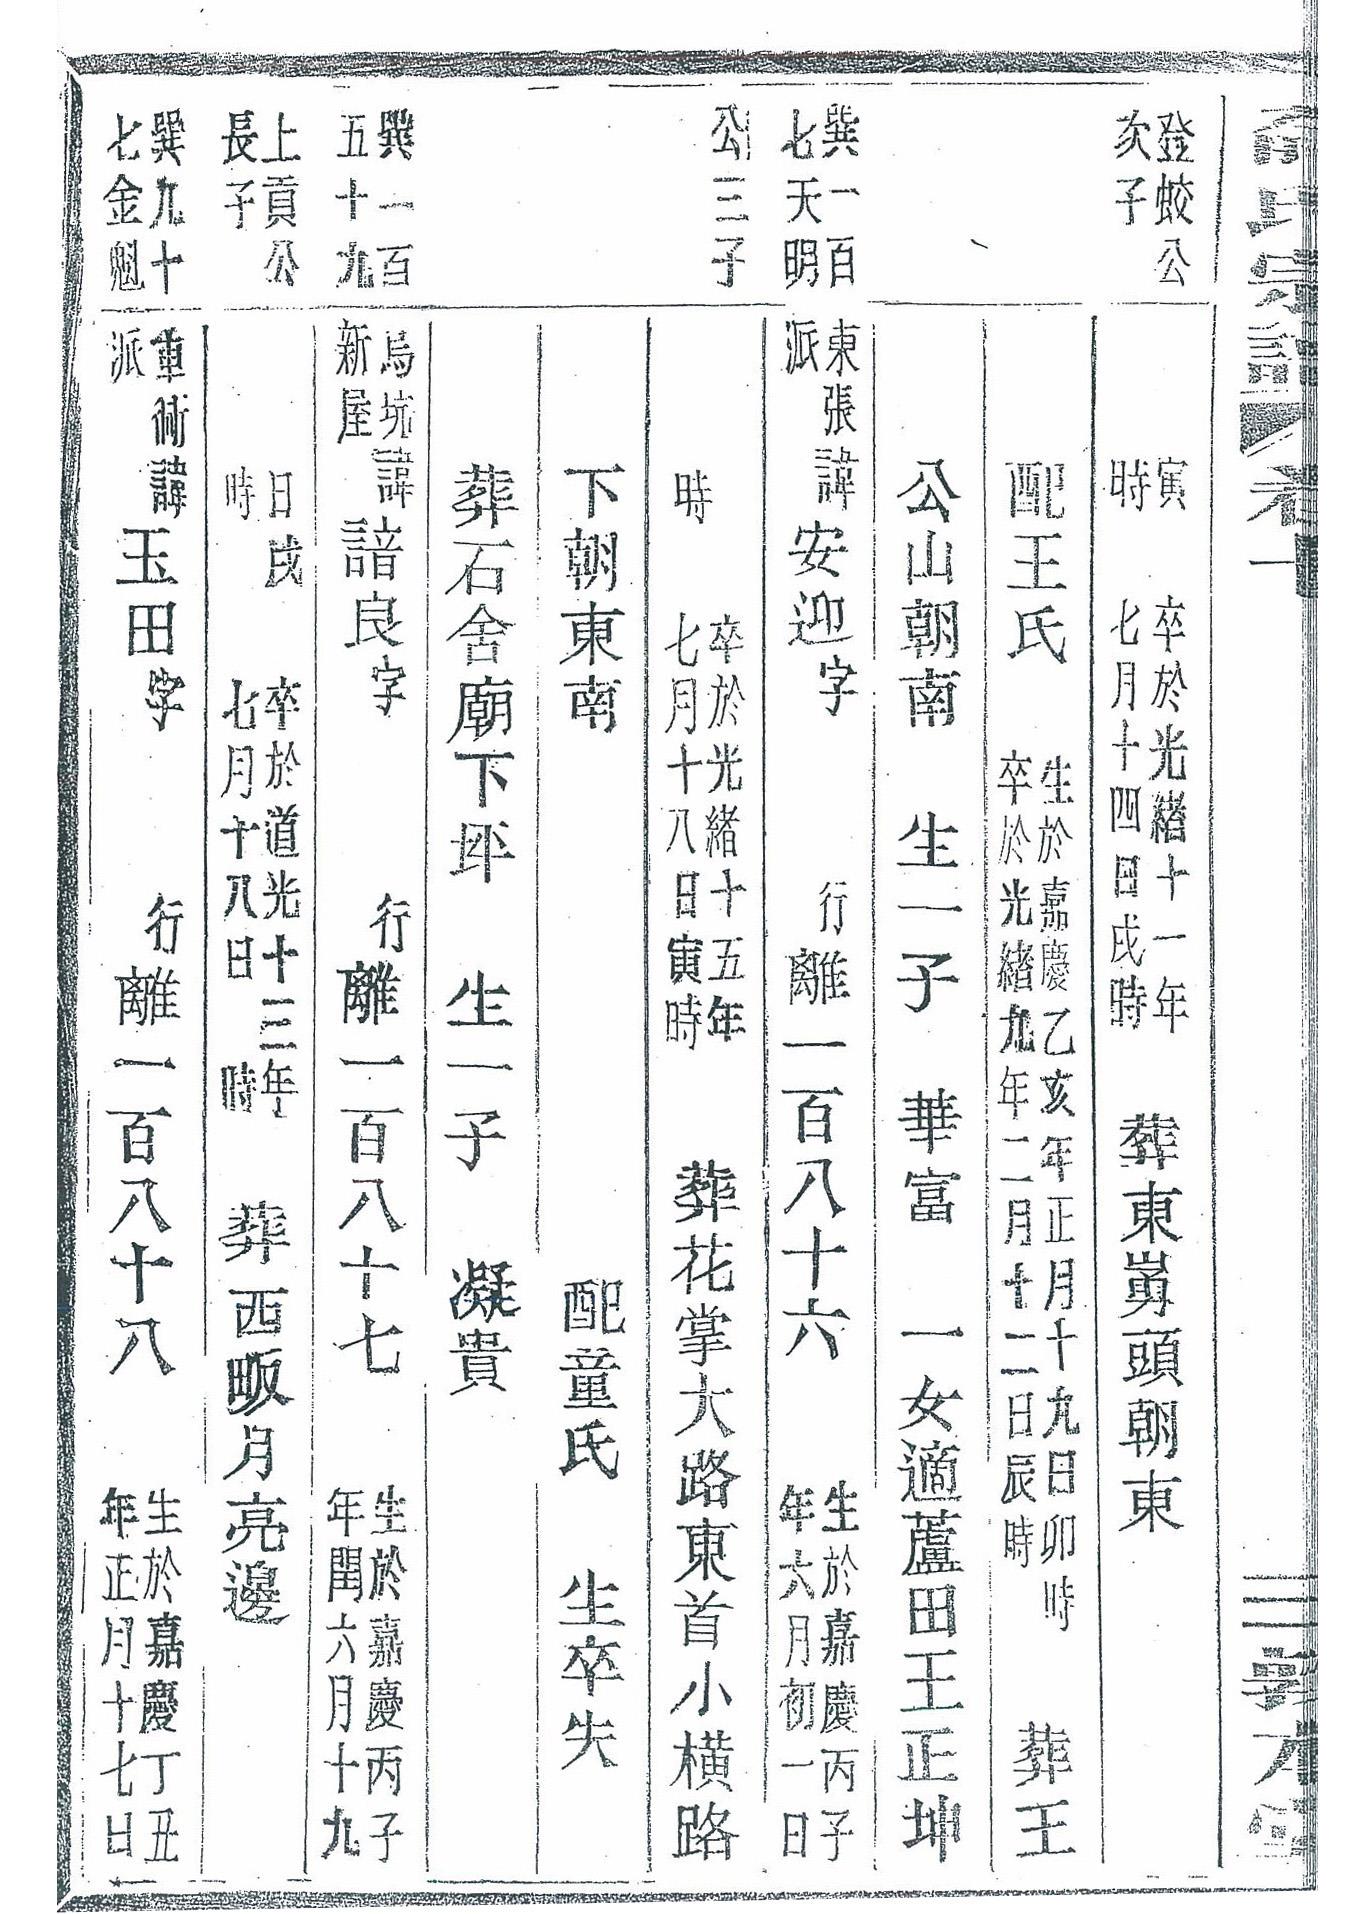 氏宗譜 卷一
登蛟公
次子
寅
時
卒於光緒十一年
七月十四日戌時
葬東嶴頭朝東
配王氏
生於嘉慶乙亥年正月十九日卯時
卒於光緒九年二月十二日辰時
葬王
公山朝南 生一子 華富 一女適蘆田王正坤
巽一百
七天明
公三子
東張
派
諱安迎字 行離一百八十六
生於嘉慶丙子
年六月初一日
時
卒於光緒十五年
七月十八日寅時
葬花掌大路東首小橫路
下朝東南 配童氏 生卒失
葬石舍廟下坪 生一子 凝貴
巽一百
五十九
上貢公
長子
烏坑
新屋
諱諳良字 行離一百八十七
生於嘉慶丙子
年閏六月十九
日戌
時
卒於道光十三年
七月十八日 時
葬西畈月亮邊
巽九十
七金魁
派
諱玉田字 行離一百八十八
生於嘉慶丁丑
年正月十七日